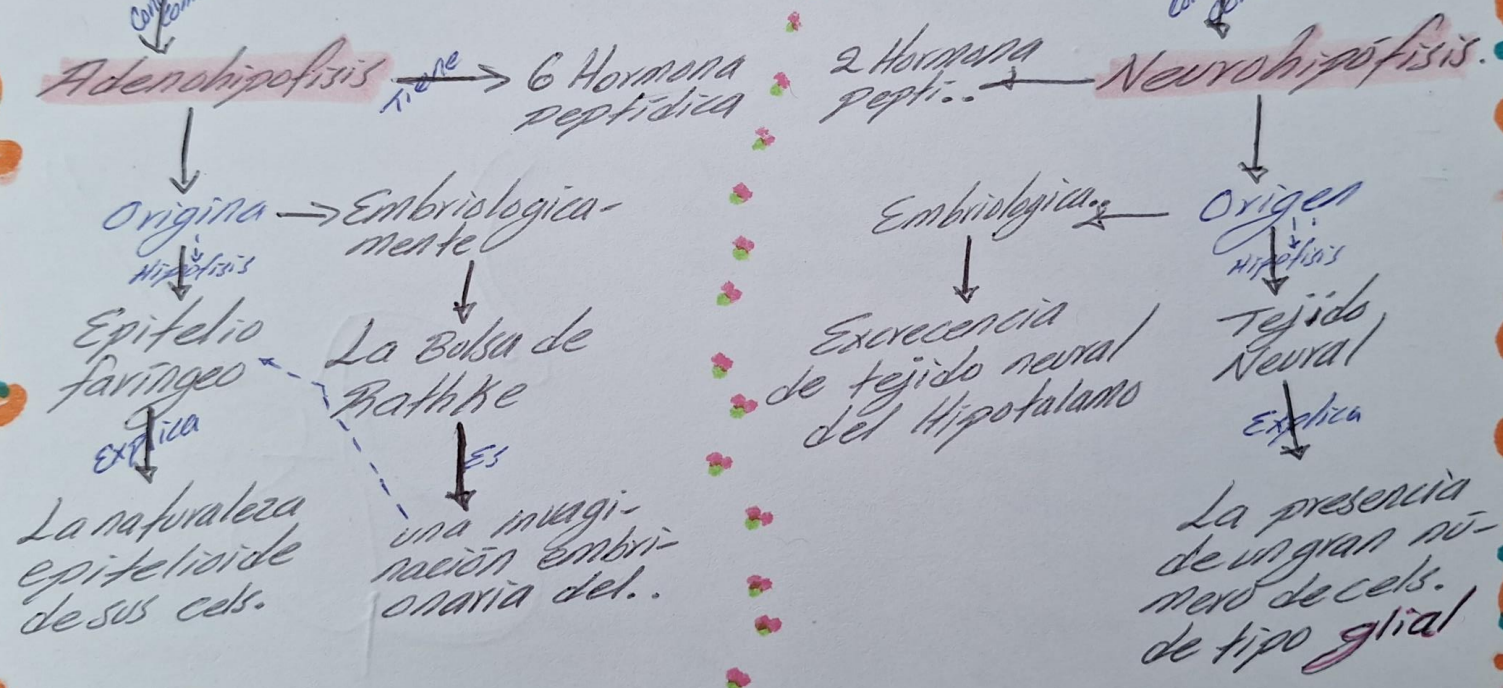 Adenohipofisis
Tiene
6 Hormona
peptídica
Origina
Hipófisis
Embriologica-
mente
Epitelio
faríngeo
La Bolsa de
Rathke
Explica
Es
La naturaleza
epitelioide
de sus cels.
una invagi-
nación embri-
onaria del..
2 Hormona
pepti..
Neurohipófisis.
Embriologica..
Origen
Hipófisis
Excrecencia
de tejido neural
del Hipotalamo
Tejido
Neural
Explica
La presencia
de un gran nú-
mero de cels.
de tipo glial